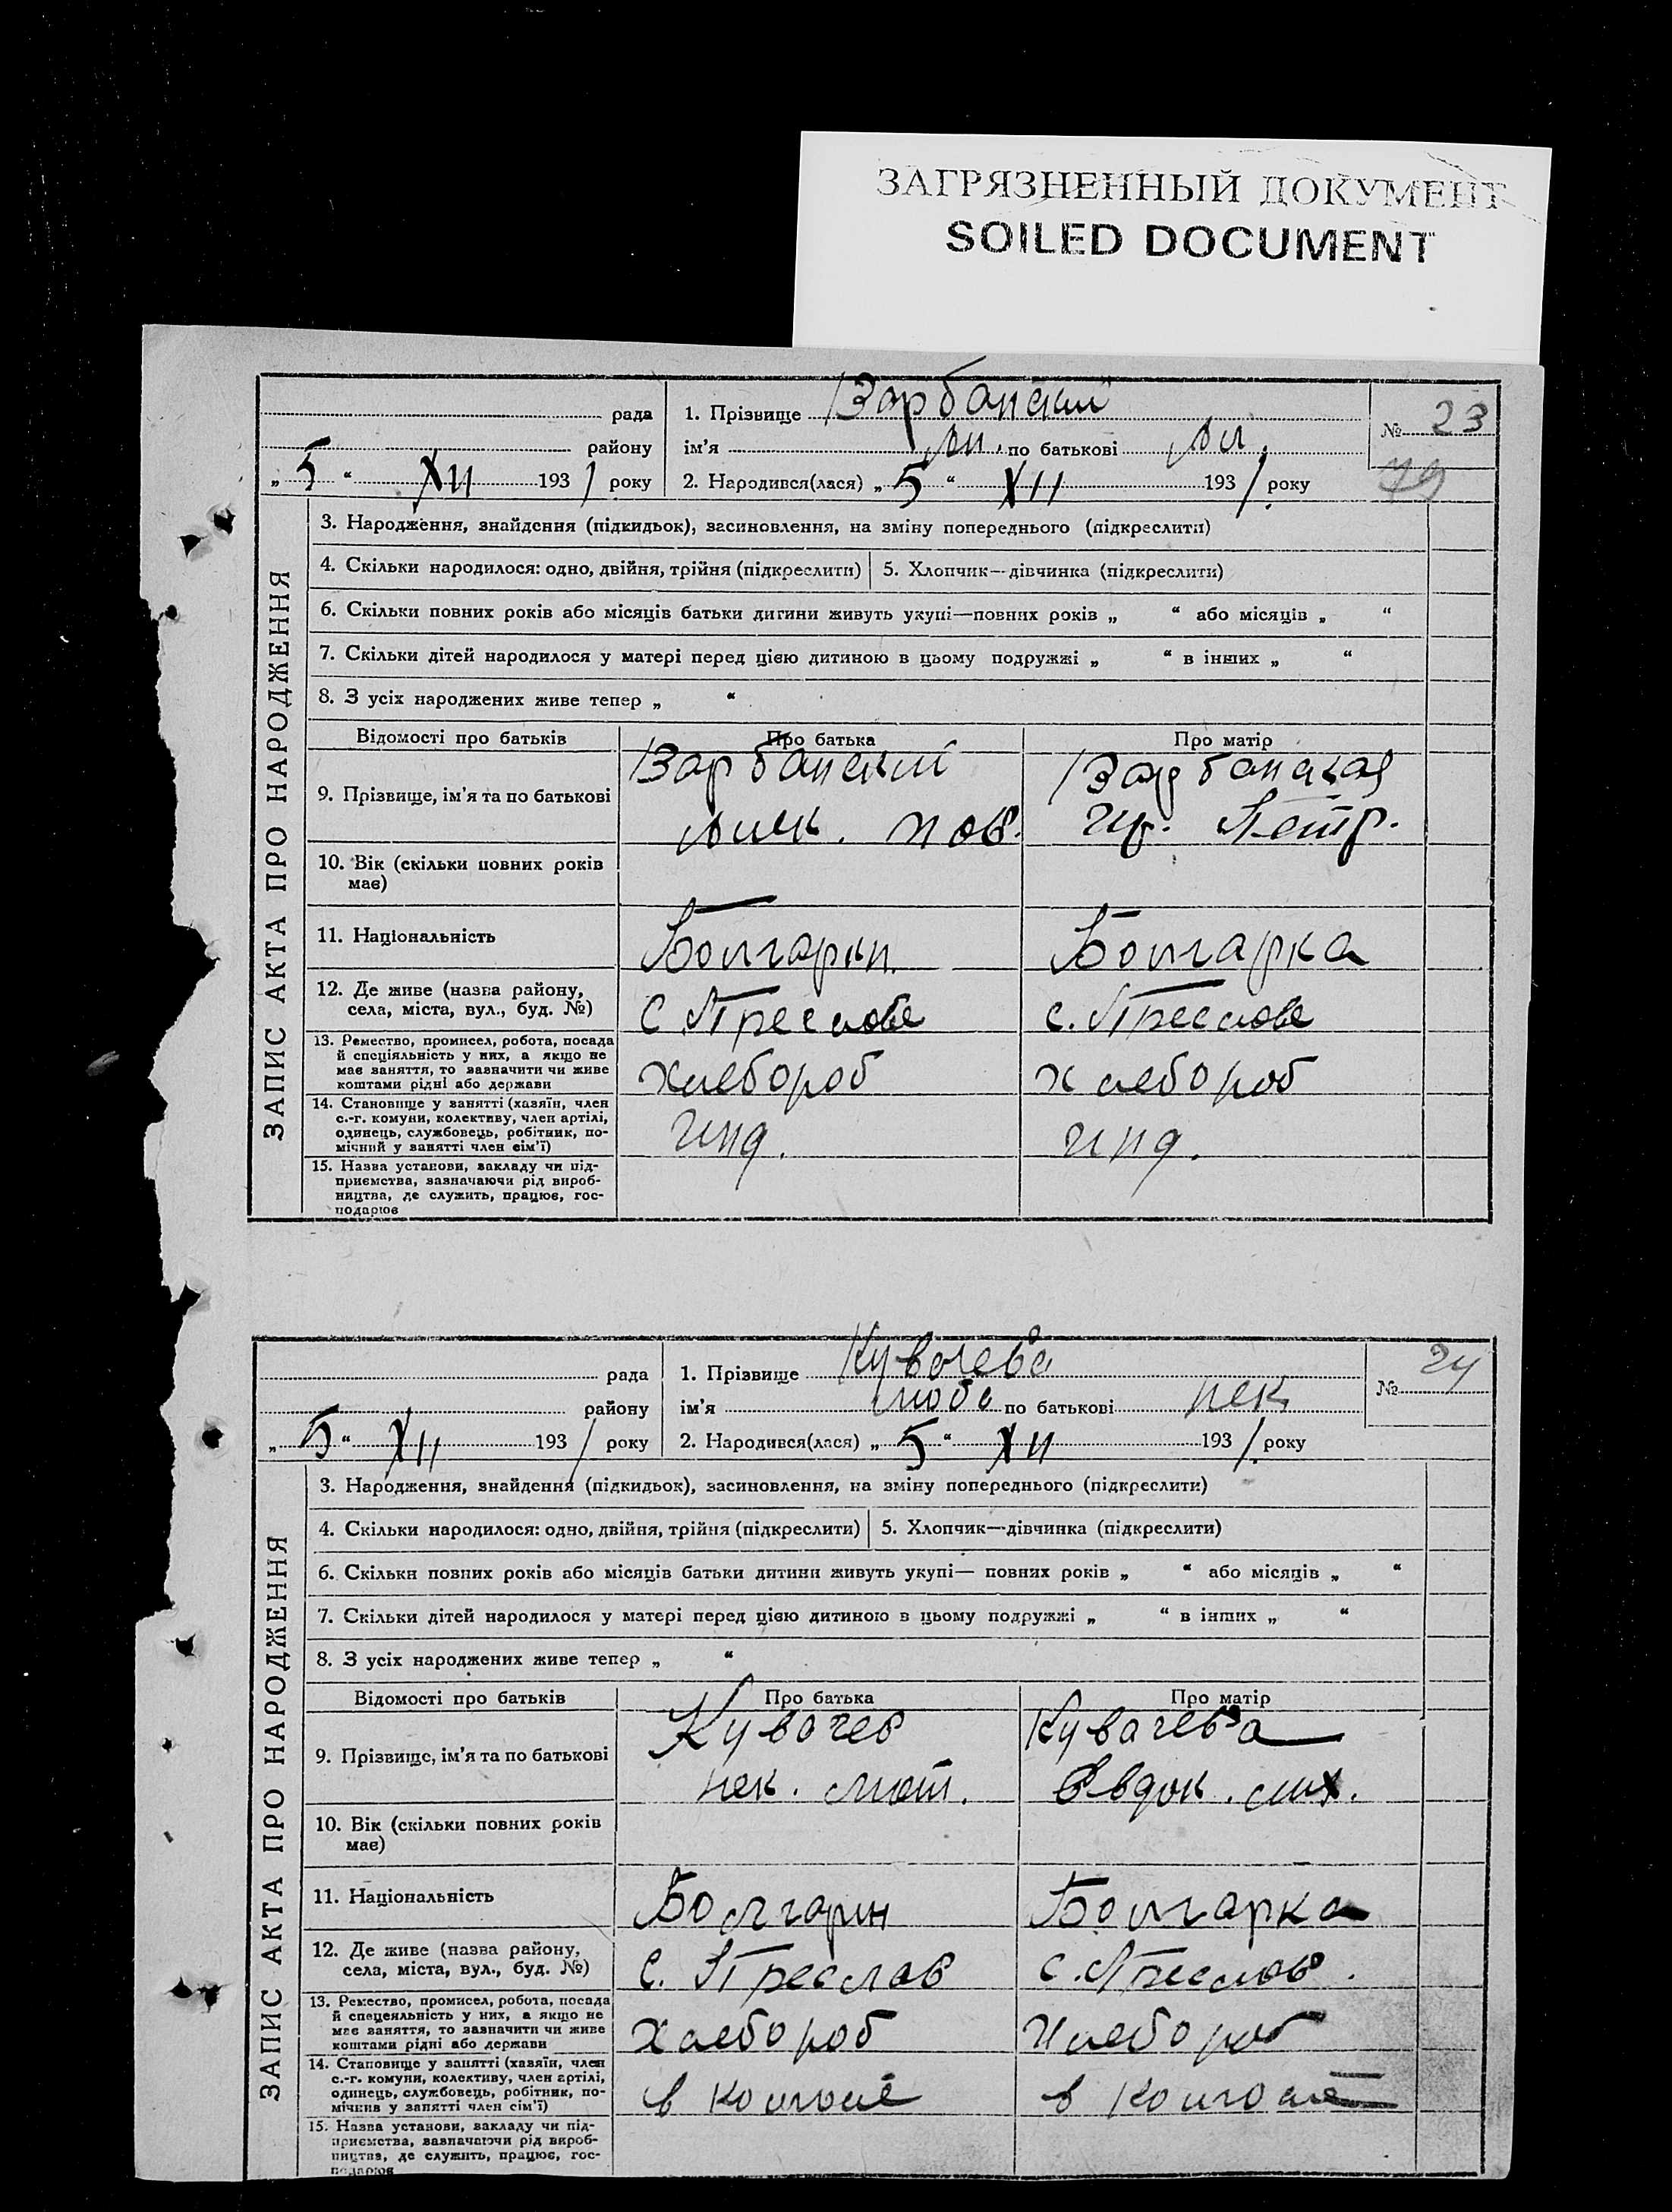 ЗАГРЯЗНЕННЫЙ ДОКУМЕНТ
SOILED DOCUMENT
рада
району
„ 5 “ XII 1931 року
1. Прізвище Зарбанский
ім’я по батькові
2. Народився(лася) „ 5 “ XII 1931 року
№ 23
79
ЗАПИС АКТА ПРО НАРОДЖЕННЯ
3. Народження, знайдення (підкидьок), засиновлення, на зміну попереднього (підкреслити)
4. Скільки народилося: одно, двійня, трійня (підкреслити)
5. Хлопчик—дівчинка (підкреслити)
6. Скільки повних років або місяців батьки дитини живуть укупі—повних років „ “ або місяців „ “
7. Скільки дітей народилося у матері перед цією дитиною в цьому подружжі „ “ в інших „ “
8. З усіх народжених живе тепер „ “
Відомості про батьків Про батька Про матір
9. Прізвище, ім’я та по батькові
Зарбанский Зарбанская
Петр.
10. Вік (скільки повних років
має)
11. Національність Болгарин Болгарка
12. Де живе (назва району,
села, міста, вул., буд. №)
с. Преслове с. Преслове
13. Ремество, промисел, робота, посада
й спеціяльність у них, а якщо не
має заняття, то зазначити чи живе
коштами рідні або держави
хлебороб хлебороб
14. Становище у занятті (хазяїн, член
с.-г. комуни, колективу, член артілі,
одинець, службовець, робітник, по-
мічний у занятті член сім’ї)
инд. инд.
15. Назва установи, закладу чи під-
приємства, зазначаючи рід вироб-
ництва, де служить, працює, гос-
подарює
рада
району
„ 5 “ XII 1931 року
1. Прізвище Кувачева
ім’я Люба по батькові Нек
2. Народився(лася) „ 5 “ XII 1931 року
№ 24
ЗАПИС АКТА ПРО НАРОДЖЕННЯ
3. Народження, знайдення (підкидьок), засиновлення, на зміну попереднього (підкреслити)
4. Скільки народилося: одно, двійня, трійня (підкреслити)
5. Хлопчик—дівчинка (підкреслити)
6. Скільки повних років або місяців батьки дитини живуть укупі— повних років „ “ або місяців „ “
7. Скільки дітей народилося у матері перед цією дитиною в цьому подружжі „ “ в інших „ “
8. З усіх народжених живе тепер „ “
Відомості про батьків Про батька Про матір
9. Прізвище, ім’я та по батькові
Кувачев Кувачева
Нек. Евдок. Мих.
10. Вік (скільки повних років
має)
11. Національність Болгарин Болгарка
12. Де живе (назва району,
села, міста, вул., буд. №)
с. Преслав с. Преслов.
13. Ремество, промисел, робота, посада
й спецеяльність у них, а якщо не
має заняття, то зазначити чи живе
коштами рідні або держави
хлебороб хлебороб
14. Становище у занятті (хазяїн, член
с.-г. комуни, колективу, член артілі,
одинець, службовець, робітник, по-
мічнив у занятті член сім’ї)
в колгоспе в колгоспе
15. Назва установи, закладу чи під-
приємства, зазначаючи рід вироб-
ництва, де служить, працює, гос-
подарює